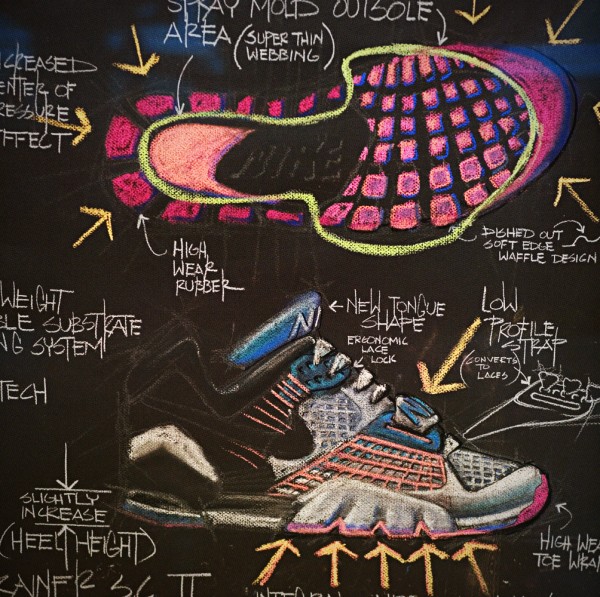 SPRAY MOLD OUTSOLE
AREA (SUPER THIN
WEBBING)
NCREASED
ENTER OF
RESSURE
FFECT
NIKE
HIGH
WEAR
RUBBER
DISHED OUT
SOFT EDGE
WAFFLE DESIGN
WEIGHT
BLE SUBSTRATE
NG SYSTEM
TECH
NEW TONGUE
SHAPE
ERGONOMIC
LACE
LOCK
LOW
PROFILE
STRAP
(CONVERTS
TO
LACES)
N
SLIGHTLY
INCREASE
(HEEL HEIGHT)
HIGH WEA
TOE WRA
RAINER SC II